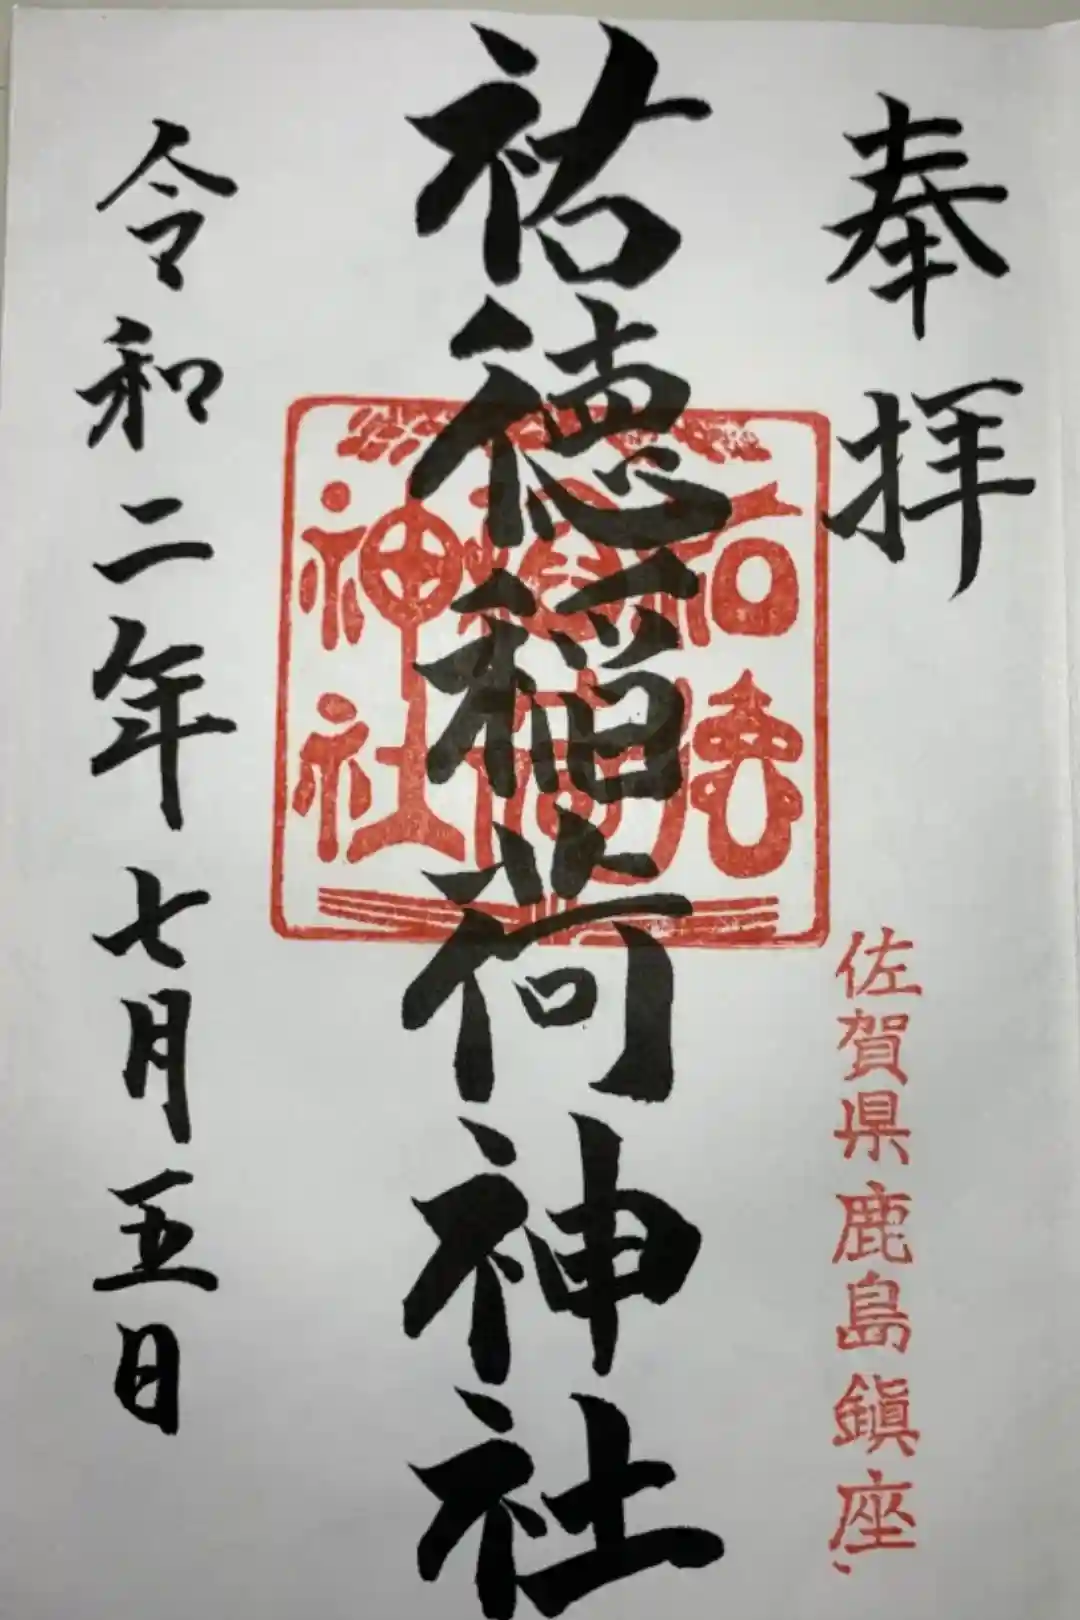 奉拝
佐賀県鹿島鎮座
祐徳稲荷神社
祐徳
稲荷
神社
令和二年七月五日